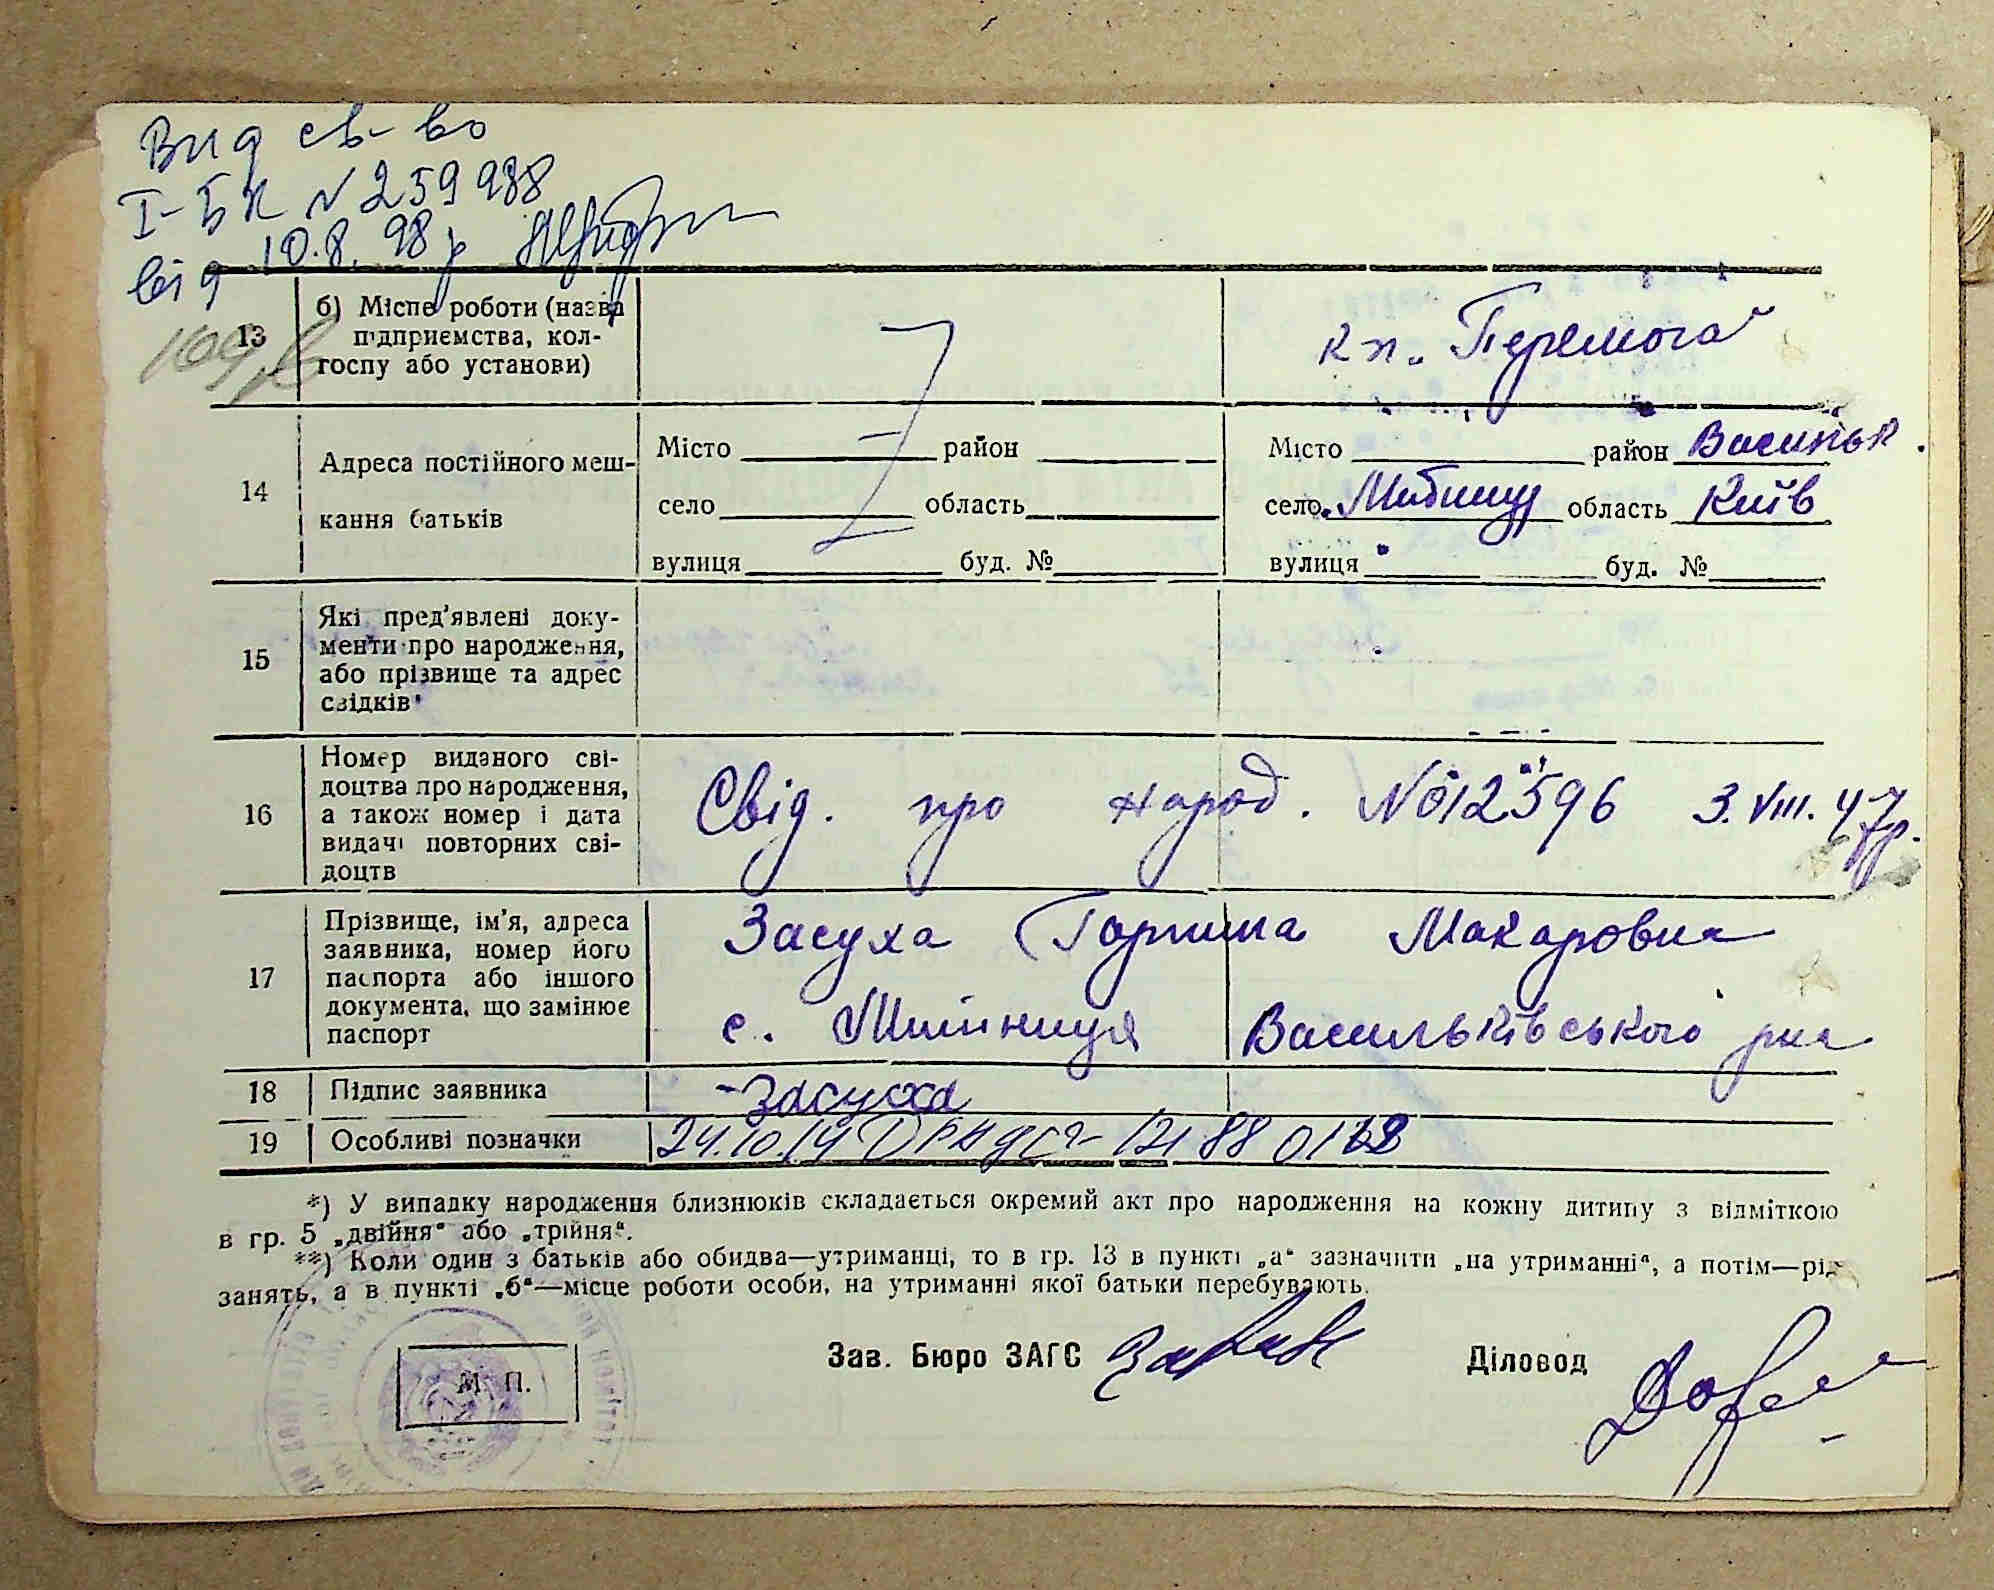 Вид св-во
I-БК N 259988
від 10.8.98 р
13
б) Місце роботи (назва
підприємства, кол-
госпу або установи)
кп. „Перемога“
14
Адреса постійного меш-
кання батьків
Місто район
село область
вулиця буд. №
Місто район Васильк.
село область Київ
вулиця буд. №
15
Які пред'явлені доку-
менти про народження,
або прізвище та адрес
свідків
16
Номер виданого сві-
доцтва про народження,
а також номер і дата
видачі повторних сві-
доцтв
Свід. про народ. № 012596 3.VIII.47р.
17
Прізвище, ім'я, адреса
заявника, номер його
паспорта або іншого
документа, що замінює
паспорт
Засуха Горпина Макаровна
с. Васильківського р-на
18
Підпис заявника
Засуха
19
Особливі позначки
24.10.14 ДРАЦС
*) У випадку народження близнюків складається окремий акт про народження на кожну дитину з відміткою
в гр. 5 „двійня“ або „трійня“.
**) Коли один з батьків або обидва—утриманці, то в гр. 13 в пункті „а“ зазначити „на утриманні“, а потім—рід
занять, а в пункті „б“—місце роботи особи, на утриманні якої батьки перебувають.
М. П.
Зав. Бюро ЗАГС
Діловод